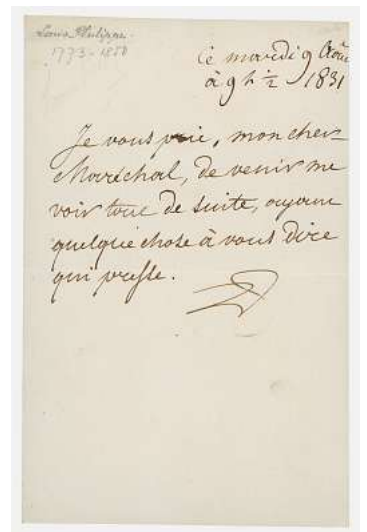 Louis Philippe.
1773-1850
Ce mardi 9 Août
à 9 h ½ 1831
Je vous prie, mon cher
Maréchal, de venir me
voir tout de suite, ayant
quelque chose à vous dire
qui presse.